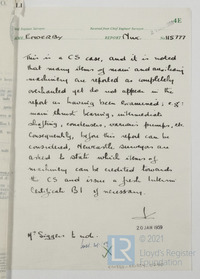 4E
REPORT Nwc. No 115777
This is a CS case, and it is noted
that many items of main and auxiliary
machinery are reported as completely
overhauled yet do not appear in the
report as having been Examined; e.g.
main thrust bearing, intermediate
shafting, condensers, various pumps, etc.
Consequently, before this report can be
considered, Newcastle surveyors are
asked to state which items of
machinery can be credited towards
the CS and issue a fresh Interim
Certificate B1 if necessary.
20 JAN 1959
to note.
© 2021
Lloyd's Register
Foundation